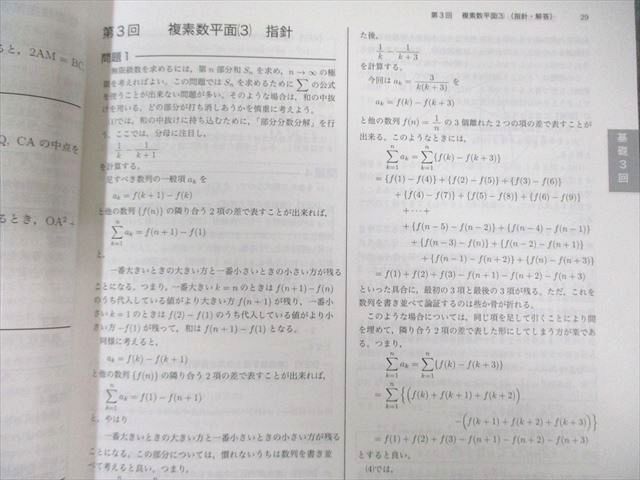 ると、2AM = BC
Q, CA の中点を
るとき、OA² +
第3回 複素数平面(3) 指針
問題1
無限級数を求めるには、第 n 部分和 Sₙ を求め、n → ∞ の極
限を考えればよい。この問題では Sₙ を求めるために Σ の公式
を使うことが出来ない問題が多い。そのような場合は、和の中抜
けを用いる。どの部分が打ち消しあうかを慎重に考えよう。
(1)では、和の中抜けに持ち込むために、「部分分数分解」を行
う。ここでは、分母に注目し、
1/k − 1/(k+1)
を計算する。
足すべき数列の一般項 aₖ を
aₖ = f(k+1) − f(k)
と他の数列 {f(n)} の隣り合う 2 項の差で表すことが出来れば、
Σ[k=1→n] aₖ = f(n+1) − f(1)
と、
一番大きいときの大きい方と一番小さいときの小さい方が残る
ことになる。つまり、一番大きい k = n のときは f(n+1) − f(n)
のうち代入している値がより大きい方 f(n+1) が残り、一番小
さい k = 1 のときは f(2) − f(1) のうち代入している値がより小
さい方 −f(1) が残って、和は f(n+1) − f(1) となる。
同様に考えると、
aₖ = f(k) − f(k+1)
と他の数列 {f(n)} の隣り合う 2 項の差で表すことが出来れば、
Σ[k=1→n] aₖ = f(1) − f(n+1)
と、やはり
一番大きいときの大きい方と一番小さいときの小さい方が残る
ことになる。この部分については、慣れないうちは数列を書き並
べて考えると良い。つまり、
第3回 複素数平面(3) (指針・解答) 29
た後、
1/k − 1/(k+3)
を計算する。
今回は aₖ = 3/(k(k+3)) を
aₖ = f(k) − f(k+3)
と他の数列 f(n) = 1/n の 3 個離れた 2 つの項の差で表すことが
出来る。このようなときには、
Σ[k=1→n] aₖ = Σ[k=1→n] {f(k) − f(k+3)}
= {f(1) − f(4)} + {f(2) − f(5)} + {f(3) − f(6)}
+ {f(4) − f(7)} + {f(5) − f(8)} + {f(6) − f(9)}
+ ⋯ +
+ {f(n−5) − f(n−2)} + {f(n−4) − f(n−1)}
+ {f(n−3) − f(n)} + {f(n−2) − f(n+1)}
+ {f(n−1) − f(n+2)} + {f(n) − f(n+3)}
= f(1) + f(2) + f(3) − f(n+1) − f(n+2) − f(n+3)
といった具合に、最初の 3 項と最後の 3 項が残る。ただ、これを
数列を書き並べて論証するのは些か骨が折れる。
このような場合については、同じ項を足して引くことにより間
を埋めて、隣り合う 2 項の差で表した形にしてしまう方が楽であ
る。つまり、
Σ[k=1→n] aₖ = Σ[k=1→n] {f(k) − f(k+3)}
= Σ[k=1→n] {(f(k) + f(k+1) + f(k+2))
−(f(k+1) + f(k+2) + f(k+3))}
= f(1) + f(2) + f(3) − f(n+1) − f(n+2) − f(n+3)
とすると良い。
(4)では、
基礎3回